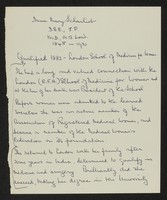 Dame Mary Scharlieb
D.B.E., J.P.
M.D., M.S. Lond.
1845 – 1930
Qualified 1882 – London School of Medicine for Women
She had a long and valued connection with the
London (R.F.H.) School of Medicine for Women and
at the of her death was President of the School
Before women were admitted to the
the was an active member of the
Association of Registered Medical Women, and
became a member of the Medical Women's
Federation on its foundation.
She returned to London with her family after
some years in India determined to qualify in
medicine and surgery. Brilliantly did she
succeed, taking her degree in the University